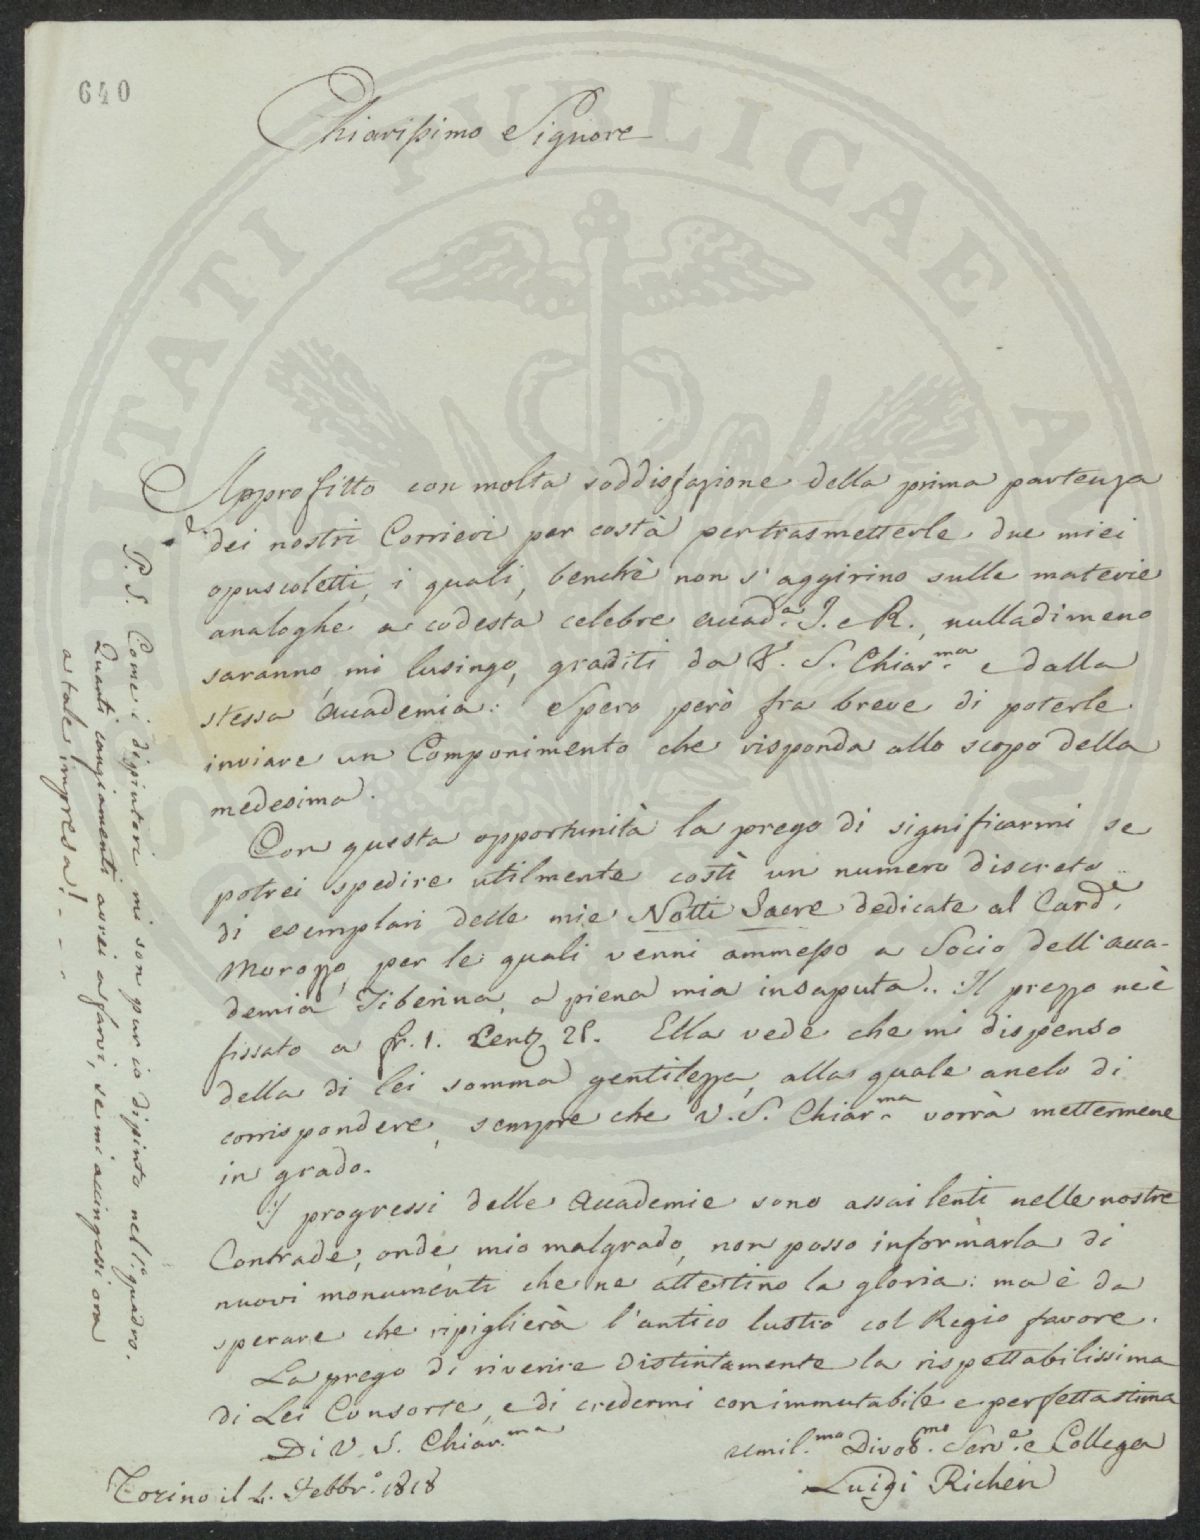 640
Chiarissimo Signore
Approfitto con molta soddisfazione della prima partenza
dei nostri Corrieri per costà per trasmetterle due miei
opuscoletti, i quali, benchè non s'aggirino sulle materie
analoghe a codesta celebre Accad.a I. e R., nulladimeno
saranno, mi lusingo, graditi da V. S. Chiar.ma e dalla
stessa Accademia: Spero però fra breve di poterle
inviare un Componimento che risponda allo scopo della
medesima.
Con questa opportunità la prego di significarmi se
potrei spedire utilmente costì un numero discreto
di esemplari delle mie Notti Sacre dedicate al Card.e
Morozzo, per le quali venni ammesso a Socio dell'Acca-
demia Tiberina, a piena mia insaputa.. Il prezzo ne è
fissato a fr. 1. Cent. 25. Ella vede che mi dispenso
della di lei somma gentilezza, alla quale anelo di
corrispondere, sempre che V. S. Chiar.ma vorrà mettermene
in grado.
I progressi delle Accademie sono assai lenti nelle nostre
Contrade, onde, mio malgrado, non posso informarla di
nuovi monumenti che ne attestino la gloria: ma è da
sperare che ripiglierà l'antico lustro col Regio favore.
La prego di riverire distintamente la rispettabilissima
di Lei Consorte, e di credermi con immutabile e perfetta stima
Di V. S. Chiar.ma
Umil.mo Divot.mo Serv.e e Collega
Luigi Richeri
Torino il 4. Febbr.o 1818
P. S. Come i dipintori mi son pur io dipinto nel 1.o quadro.
Quanti cangiamenti avrei a farvi, se mi accingessi ora
a tale impresa! - - -
SALUBRITATI PUBLICAE AN